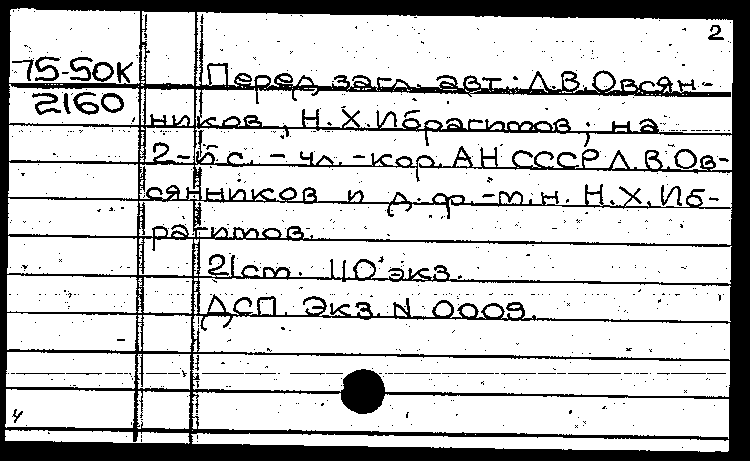 2
75-50К
2160
Перед загл. авт.: Л.В.Овсян-
ников, Н.Х.Ибрагимов; на
2-й с. - чл.-кор. АН СССР Л.В.Ов-
сянников и д. ф.-м.н. Н.Х.Иб-
рагимов.
21 ст. 110 экз.
ДСП. Экз. N 0009.
4